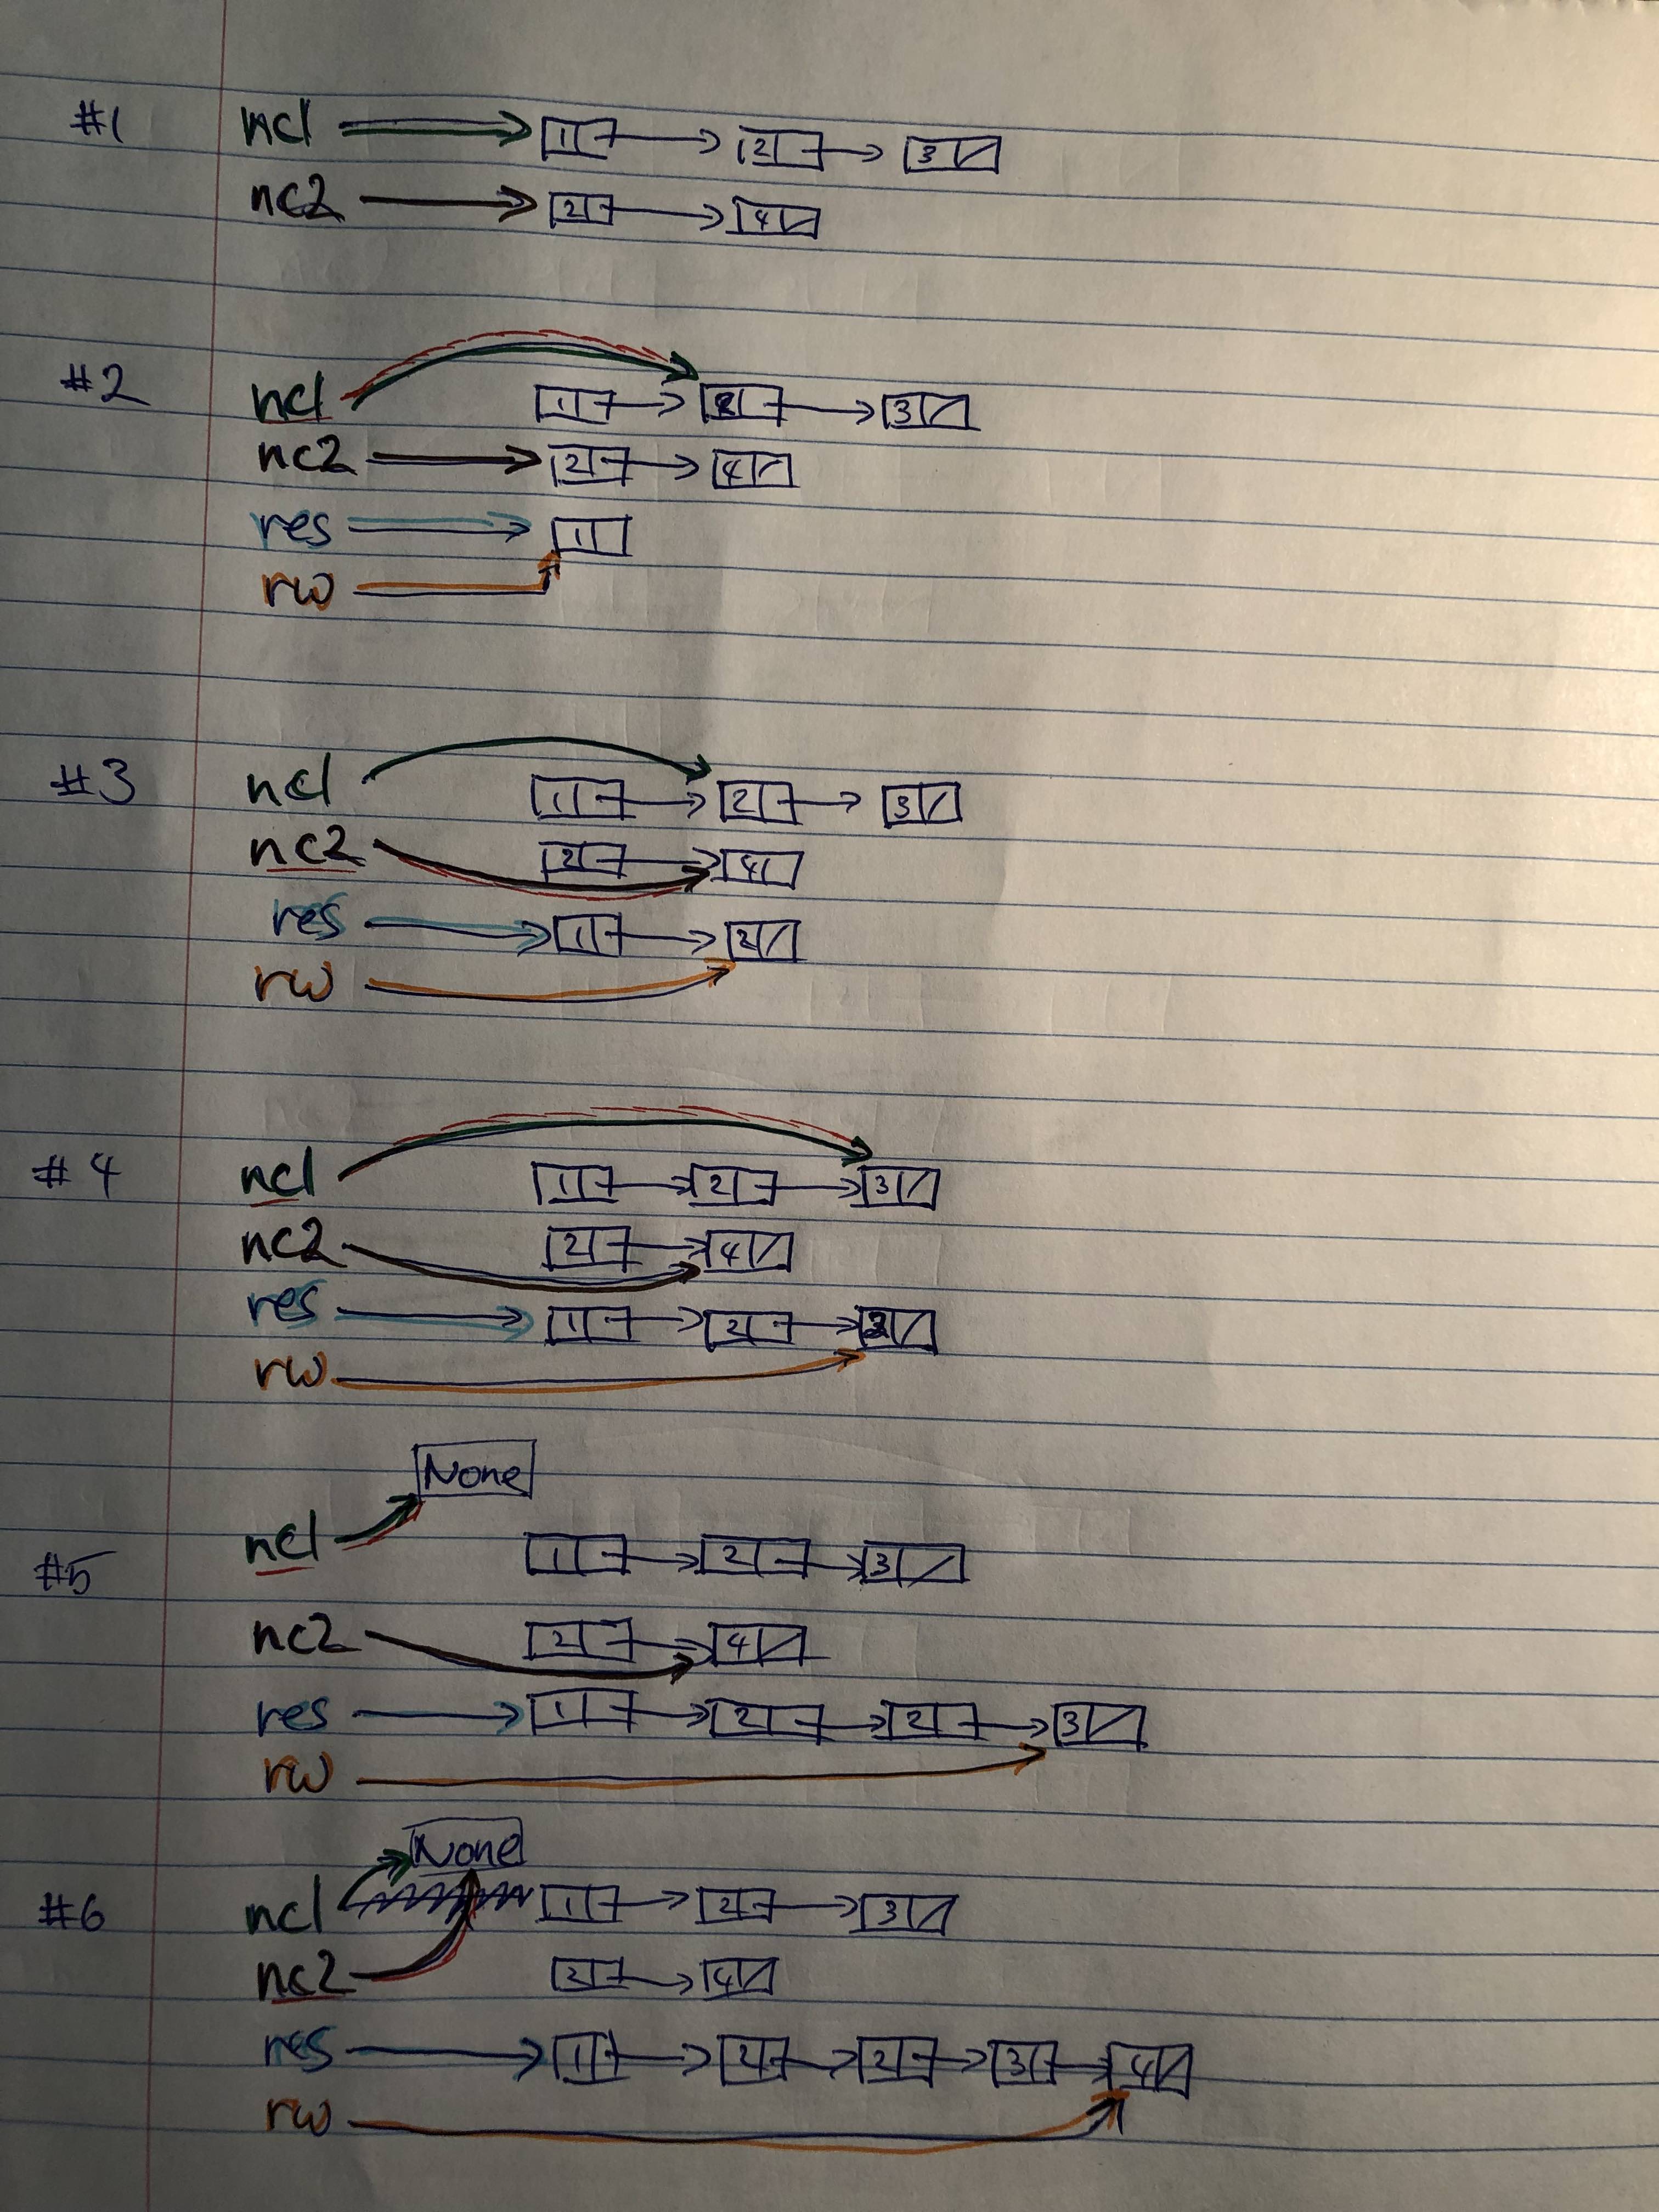 #1 nc1 1 2 3
nc2 2 4
#2 nc1 1 2 3
nc2 2 4
res 1
rw
#3 nc1 1 2 3
nc2 2 4
res 1 2
rw
#4 nc1 1 2 3
nc2 2 4
res 1 2 2
rw
None
#5 nc1 1 2 3
nc2 2 4
res 1 2 2 3
rw
None
#6 nc1 1 2 3
nc2 2 4
res 1 2 2 3 4
rw